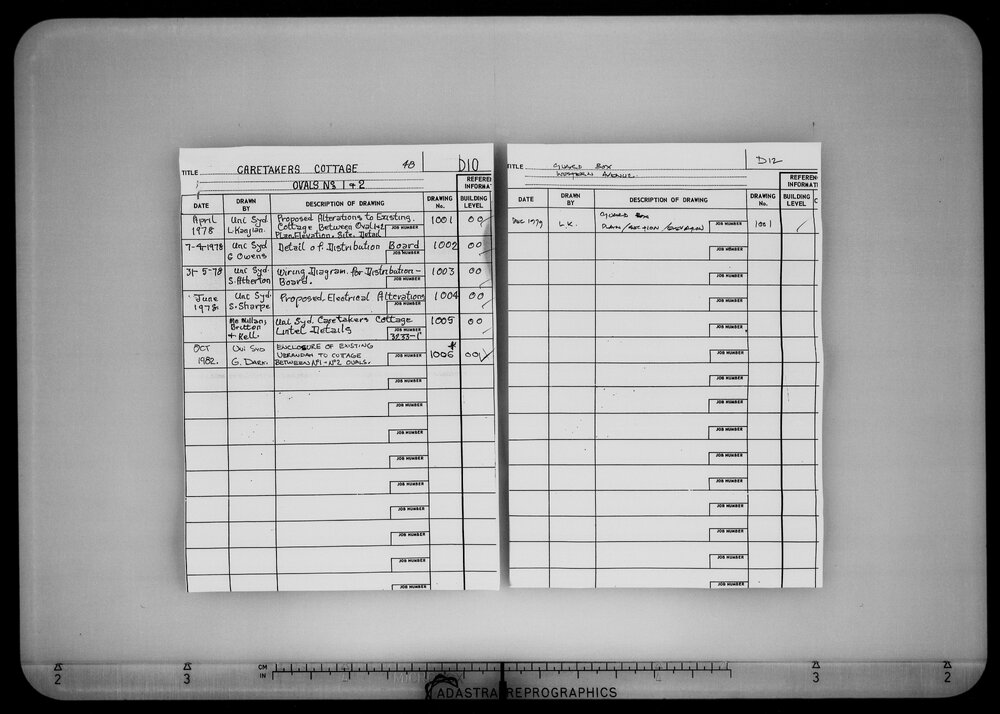 TITLE CARETAKERS COTTAGE 48 D10
OVALS Nº 1 & 2
REFEREN
INFORMAT
DATE DRAWN BY DESCRIPTION OF DRAWING DRAWING No. BUILDING LEVEL
April 1978 Uni Syd Proposed Alterations to Existing 1001 00
Cottage Between Oval 1+2 JOB NUMBER
Plan, Elevation, Site, Detail
7-4-1978 Uni Syd G Owens Detail of Distribution Board JOB NUMBER 1002 00
31-5-78 Uni Syd. S. Atherton Wiring Diagram for Distribution - 1003 00
Board. JOB NUMBER
June 1978 Uni Syd S. Sharpe Proposed Electrical Alterations JOB NUMBER 1004 00
Mc Millan, Britton + Kell. Uni Syd Caretakers Cottage 1005 00
Lintel Details JOB NUMBER 3233-1
OCT 1982. UNI SYD G. DARK. ENCLOSURE OF EXISTING
VERANDAH TO COTTAGE JOB NUMBER 1006 * 00
BETWEEN Nº1 - Nº2 OVALS.
JOB NUMBER
JOB NUMBER
JOB NUMBER
JOB NUMBER
JOB NUMBER
JOB NUMBER
JOB NUMBER
JOB NUMBER
JOB NUMBER
TITLE GUARD BOX D12
WESTERN AVENUE.
REFEREN
INFORMATI
DATE DRAWN BY DESCRIPTION OF DRAWING DRAWING No. BUILDING LEVEL C
DEC 1979 L.K. GUARD BOX 1001
PLAN/SECTION/ELEVATION JOB NUMBER
JOB NUMBER
JOB NUMBER
JOB NUMBER
JOB NUMBER
JOB NUMBER
JOB NUMBER
JOB NUMBER
JOB NUMBER
JOB NUMBER
JOB NUMBER
JOB NUMBER
JOB NUMBER
JOB NUMBER
JOB NUMBER
CM
IN
2 3 3 2
ADASTRA REPROGRAPHICS